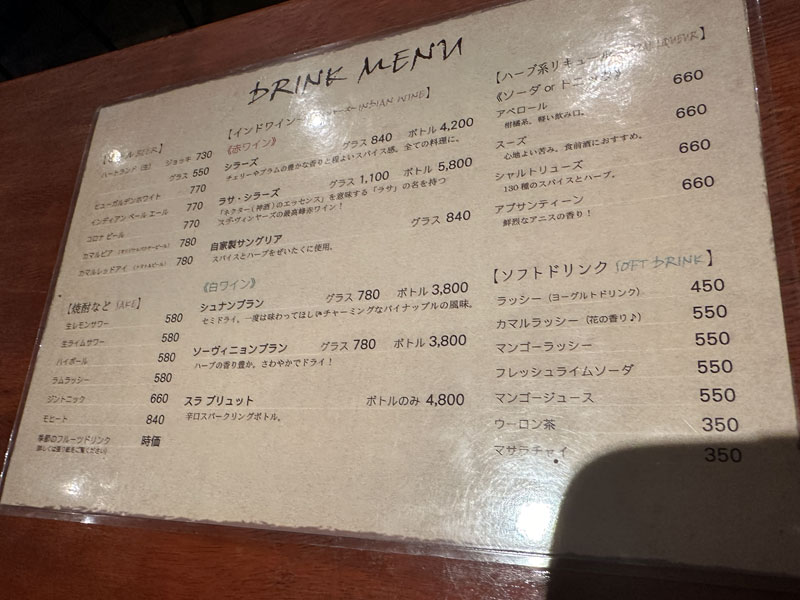 DRINK MENU
ハートランド
ジョッキ 730
グラス 550
ヒューガルデンホワイト 770
インディアン ペール エール 770
コロナ ビール 770
カマルビア 780
カマルレッドアイ 780
【焼酎など SAKE】
生レモンサワー 580
生ライムサワー 580
ハイボール 580
ラムラッシー 580
ジントニック 660
モヒート 840
季節のフルーツドリンク 時価
【インドワイン INDIAN WINE】
《赤ワイン》
シラーズ グラス 840 ボトル 4,200
チェリーやプラムの豊かな香りと程よいスパイス感。全ての料理に。
ラサ・シラーズ グラス 1,100 ボトル 5,800
「ネクター(神酒)のエッセンス」を意味する「ラサ」の名を持つ
スラ・ヴィンヤーズの最高峰赤ワイン!
自家製サングリア グラス 840
スパイスとハーブをぜいたくに使用。
《白ワイン》
シュナンブラン グラス 780 ボトル 3,800
セミドライ。一度は味わってほしいチャーミングなパイナップルの風味。
ソーヴィニョンブラン グラス 780 ボトル 3,800
ハーブの香り豊か。さわやかでドライ!
スラ ブリュット ボトルのみ 4,800
辛口スパークリングボトル。
【ハーブ系リキュール LIQUEUR】
《ソーダ or トニック》
アペロール 660
柑橘系。軽い飲み口。
スーズ 660
心地よい苦み。食前酒におすすめ。
シャルトリューズ 660
130 種のスパイスとハーブ。
アブサンティーン 660
鮮烈なアニスの香り!
【ソフトドリンク SOFT DRINK】
ラッシー(ヨーグルトドリンク) 450
カマルラッシー(花の香り♪) 550
マンゴーラッシー 550
フレッシュライムソーダ 550
マンゴージュース 550
ウーロン茶 350
マサラチャイ 350